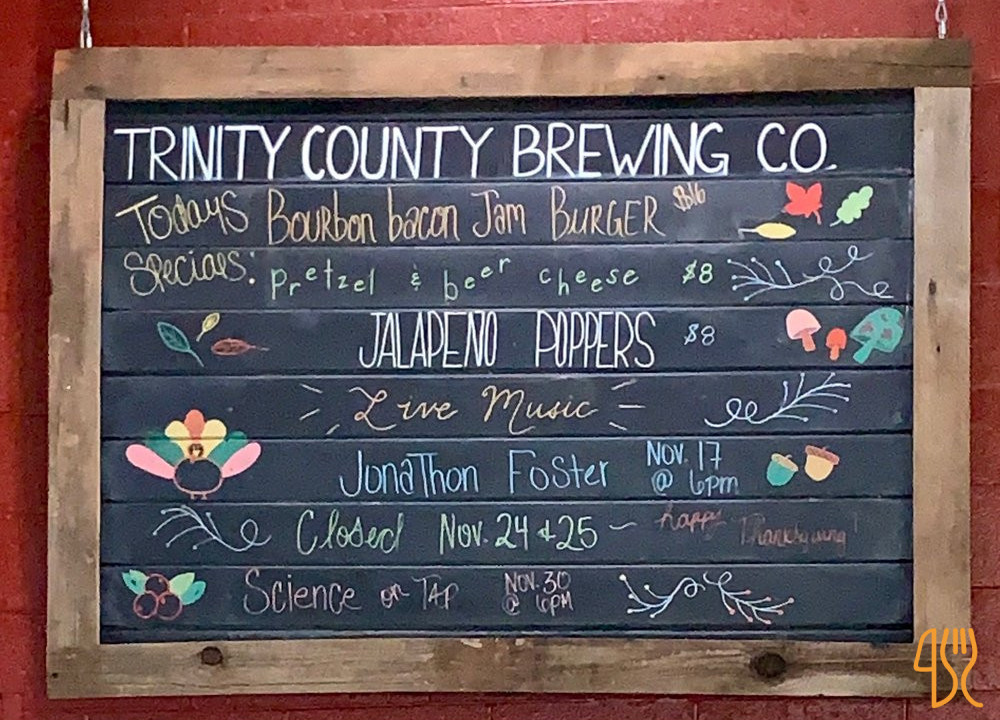 TRINITY COUNTY BREWING CO.
Todays Bourbon bacon Jam BURGER $16
Specials: Pretzel & beer cheese $8
JALAPENO POPPERS $8
Live Music
Jonathon Foster Nov. 17 @ 6pm
Closed Nov. 24 & 25 ~ happy Thanksgiving!
Science on TAP Nov. 30 @ 6PM